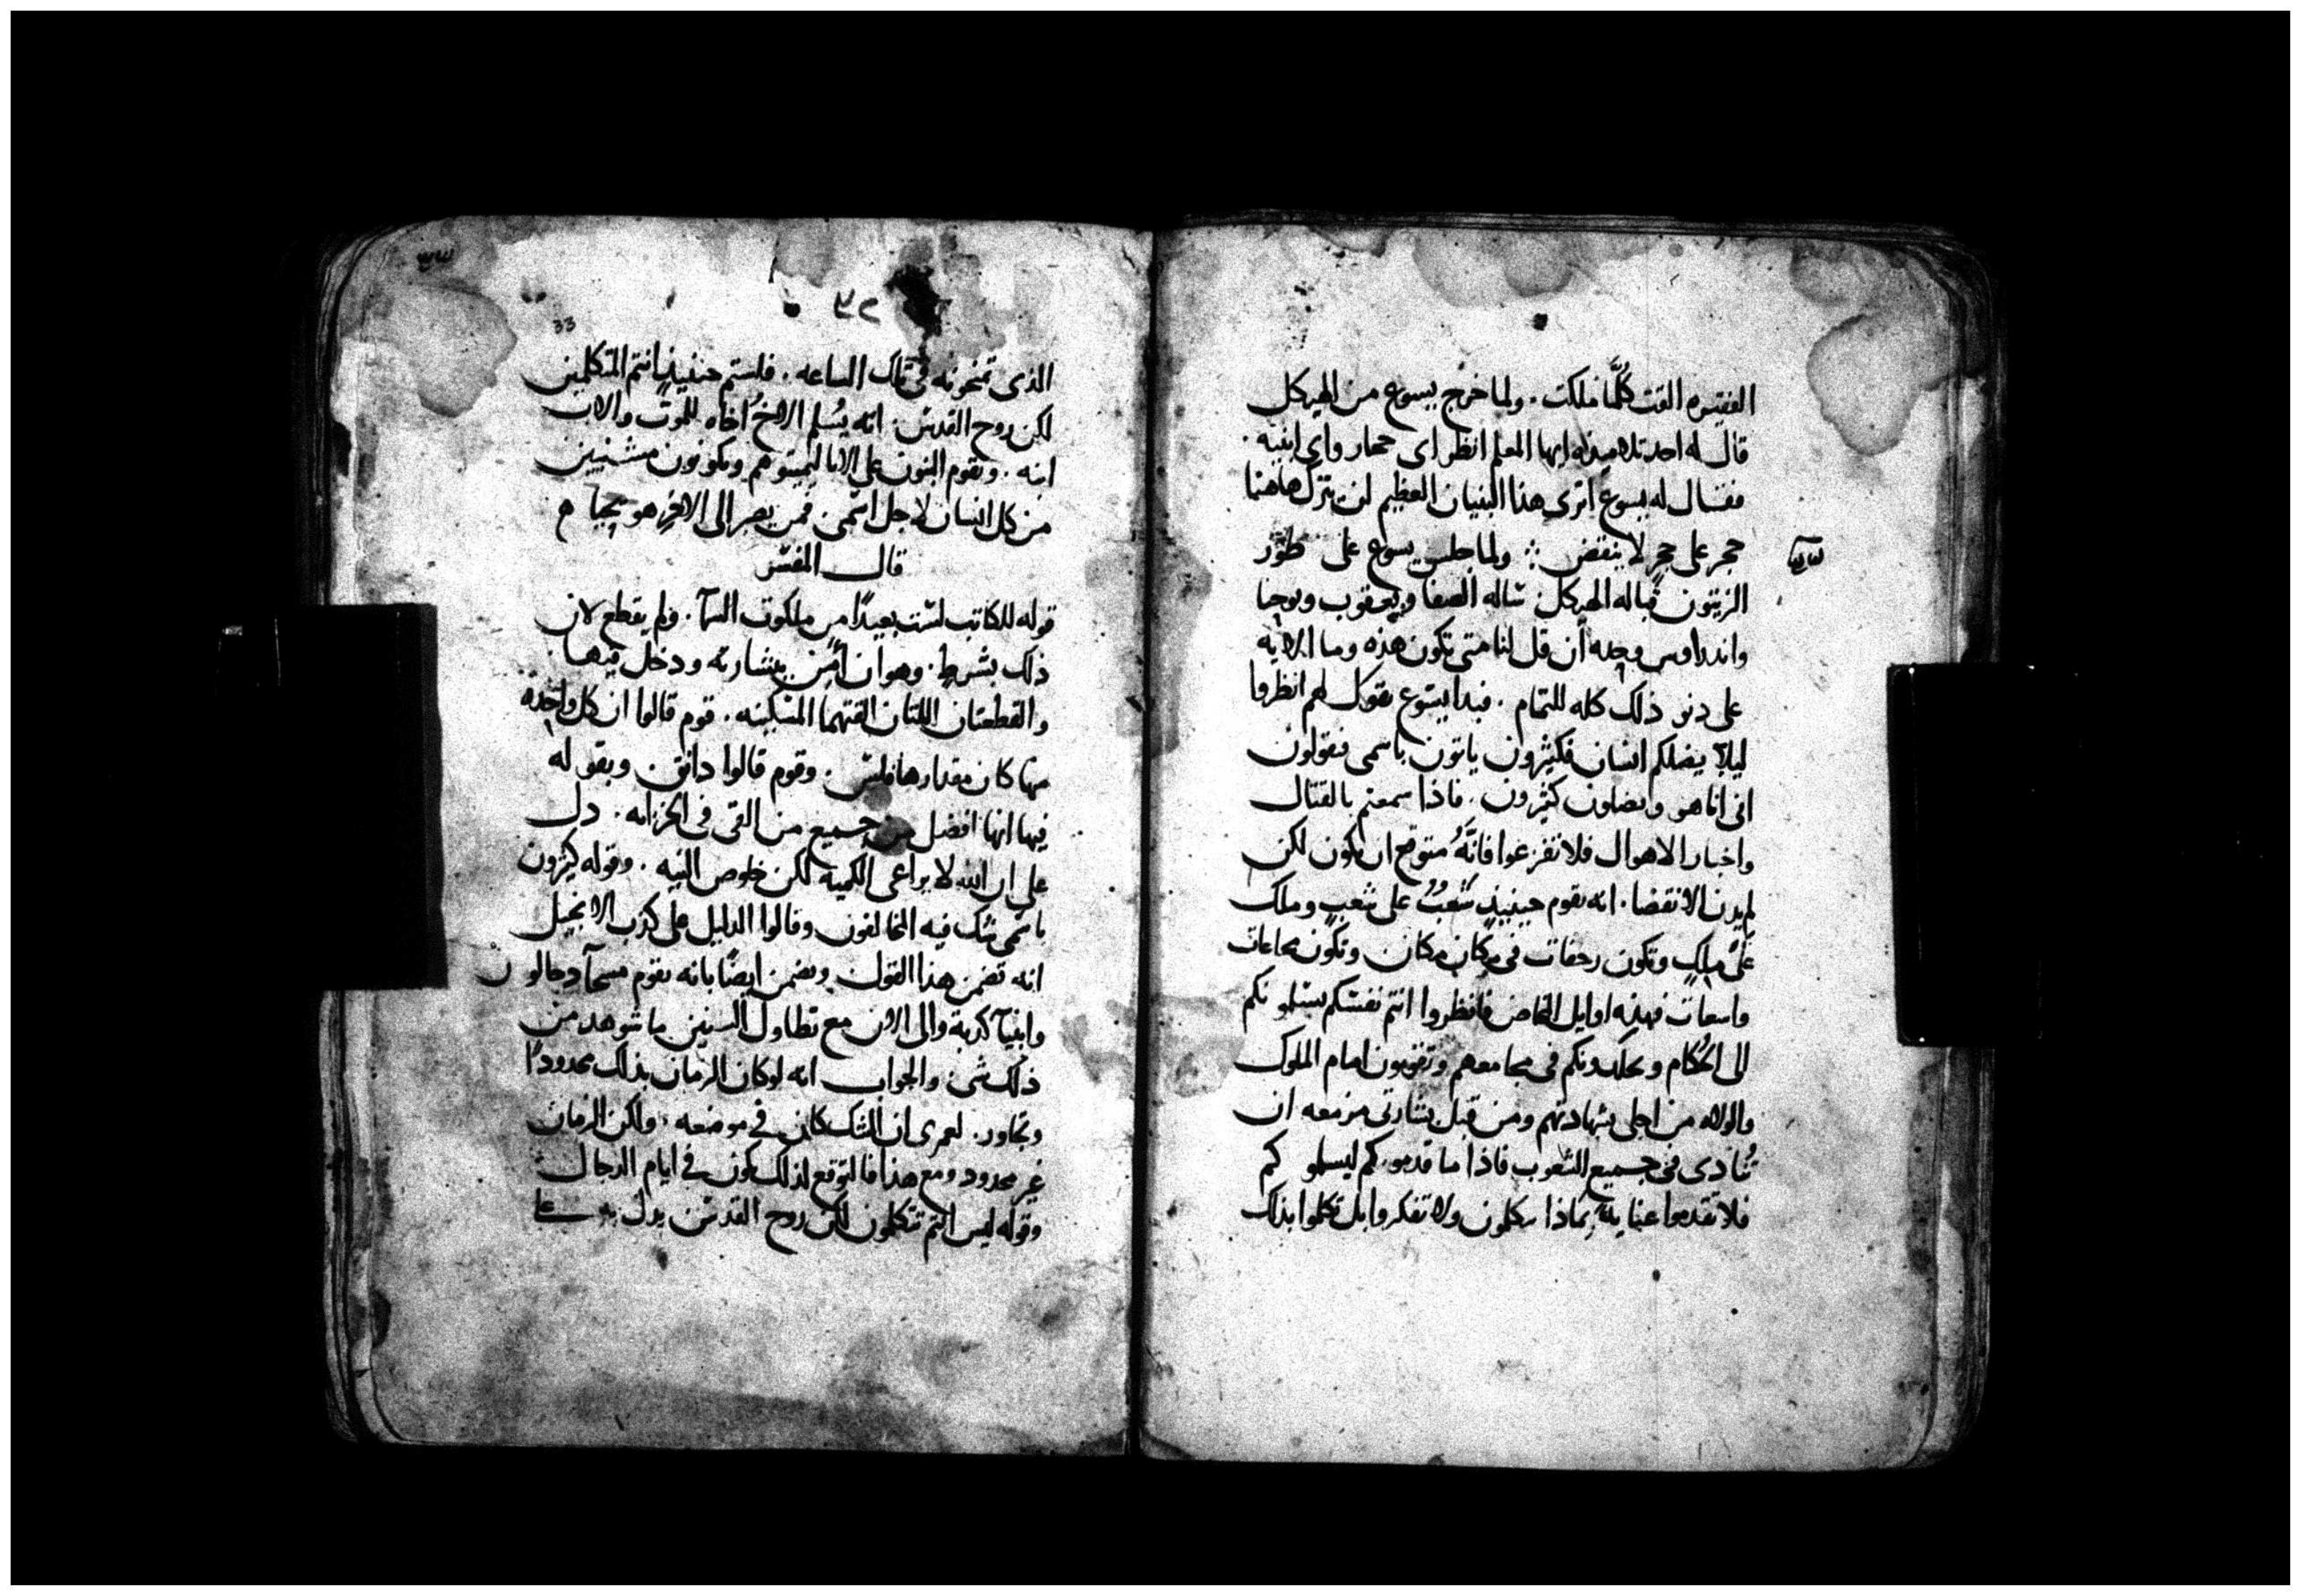 الفقيره القت كُلَّما ملكت . ولما خرج يسوع من الهيكل
قال له احد تلاميذه ايها المعلم انظر اى حجار واى ابنيه .
فقال له يسوع اترى هذا البنيان العظيم لن يترل هاهنا
حجر على حجر لا ينقض ؞ ولما جلس يسوع على طور
الزيتون قباله الهيكل ساله الصفا ويعقوب ويوحنا
واندراوس وحده أن قل لنا متى تكون هذه وما الايه
على دنو ذلك كله للتمام . فبدا يسوع يقول لهم انظروا
ليلا يضلكم انسان فكثيرون ياتون باسمى فيقولون
انى انا هو ويضلون كثيرون . فاذا سمعتم بالقتال
واخبار الاهوال فلا تفزعوا فانَّهُ متوقع ان يكون لكن
لم يدن الانقضا . انه يقوم حينيذٍ شَعْبٌ على شعبٍ وملك
على ملكٍ وتكون رجفات فى مكان مكان وتكون مجاعات
واسعات فهذه اوايل المخاض فانظروا انتم نفسكم يسلمونكم
الى الحُكام ويجلدونكم فى مجامعهم وتقفون امام الملوك
والولاه من اجلى شهادتهم ومن قبل بشارتى مزمعه ان
تُنادى فى جميع الشعوب فاذا ما قدموكم ليسلموكم
فلا تقدموا عنايةً بماذا تتكلمون ولا تفكروا بل تكلموا بذاك
٣٢
33
الذى تمنحونه فى تلك الساعه . فلستم حينيذٍ انتم المتكلمين
لكن روح القدس . انه يُسلم الاخُ اخاه للموت والاب
ابنه . ويقوم البنون على الابا ليميتوهم وتكونون مشنيين
من كل انسان لاجل اسمى . فمن يصبر الى الاخر هو يحيا
قال المفسر
قوله للكاتب لست بعيدًا من ملكوت السمآ . ولم يقطع لان
ذلك بشرط . وهو ان امن ببشارته ودخل فيها
والقطعتان اللتان القتهما المسكينه . قوم قالوا ان كل واحدة
منها كان مقدارها فلس . وقوم قالوا دانق . وبقوله
فيها انها افضل من جميع من القى فى الخزانه . دل
على ان الله لا يراعى الكميه لكن خلوص النيه . وقوله كثيرون
باسمى شك فيه المخالفون وقالوا الدليل على كذب الانجيل
انه تضمن هذا القول . وتضمن ايضًا بانه يقوم مسحآ دجالون
وانبيآ كذبة والى الان مع تطاول السنين ما شوهد من
ذلك شى . والجواب انه لو كان الزمان بذلك محدودًا
وتجاوز . لعمرى ان الشك كان فى موضعه . ولكن الزمان
غير محدود ومع هذا فالتوقع لذلك يكون فى ايام الدجال
وقوله ليس انتم تتكلمون لكن روح القدس يدل به على